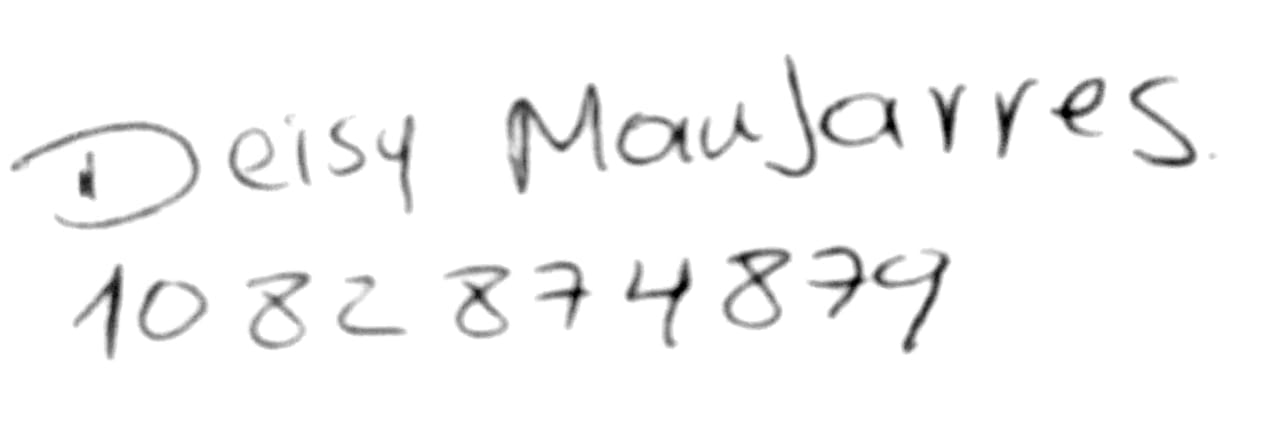 Deisy ManJarres
1082874879